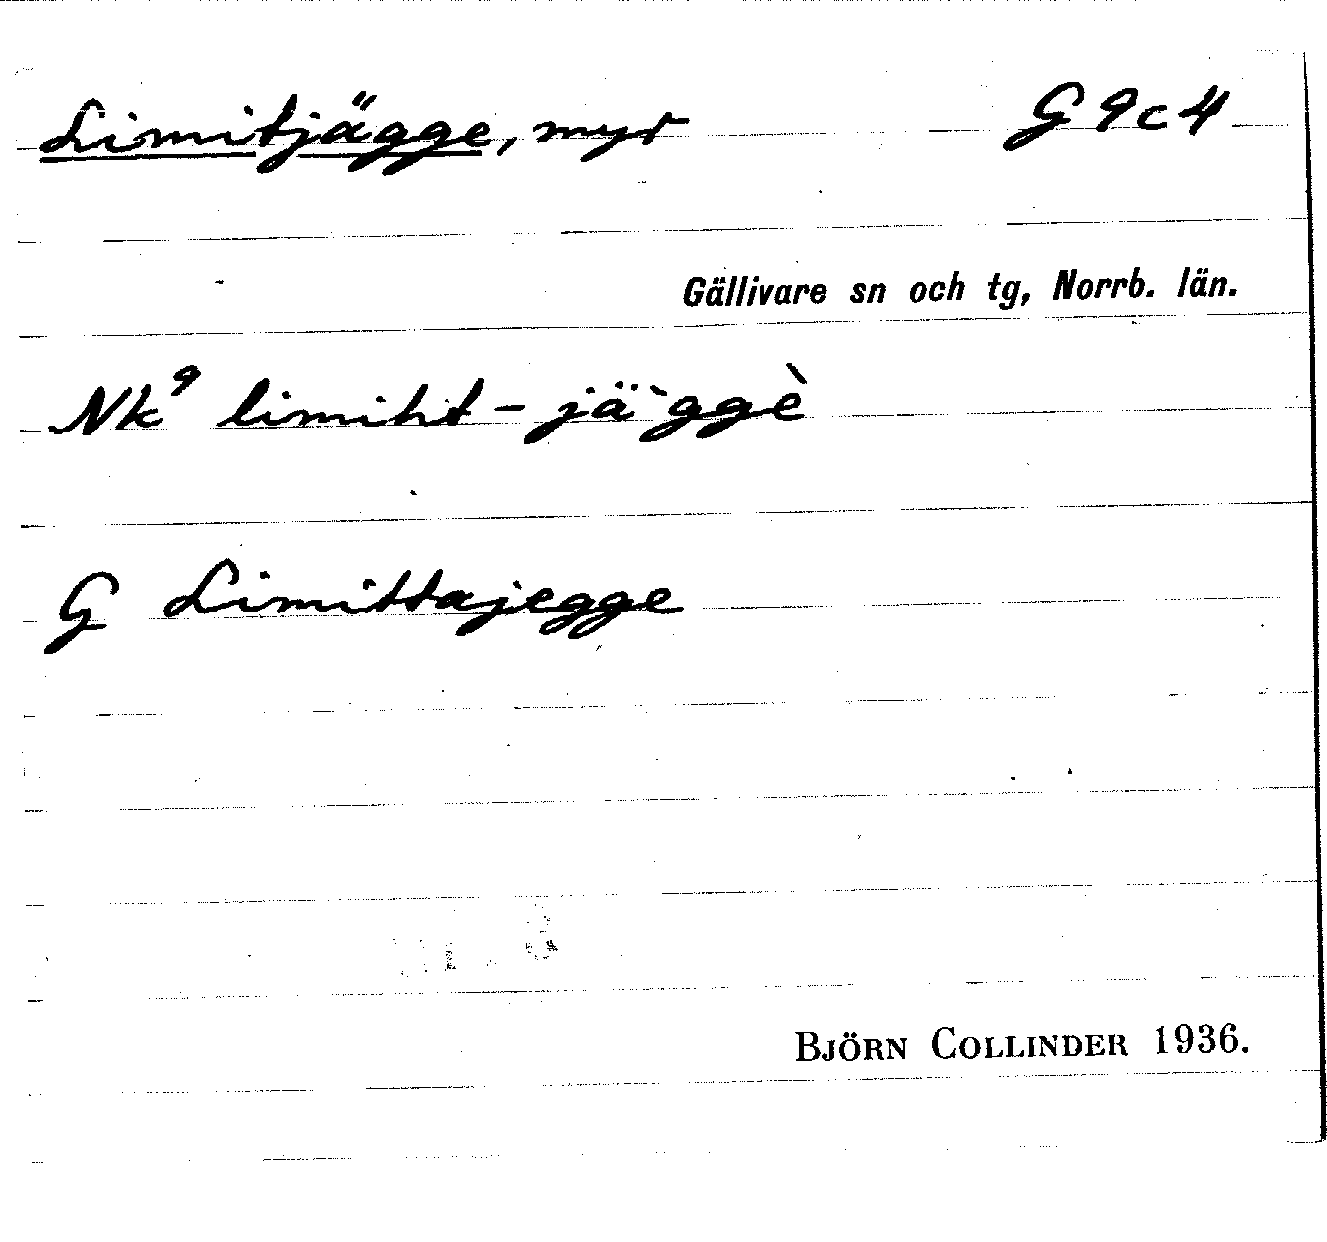 Limitjägge, myr G 9 c 4
Gällivare sn och tg, Norrb. län.
Nk⁹ limiht-jä`ggè
G Limittajegge
BJÖRN COLLINDER 1936.